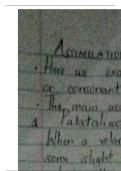 ASSIMILATIO
Here we exa
or consonant
The main ass
1 Palatalizat
When a velar
some slight